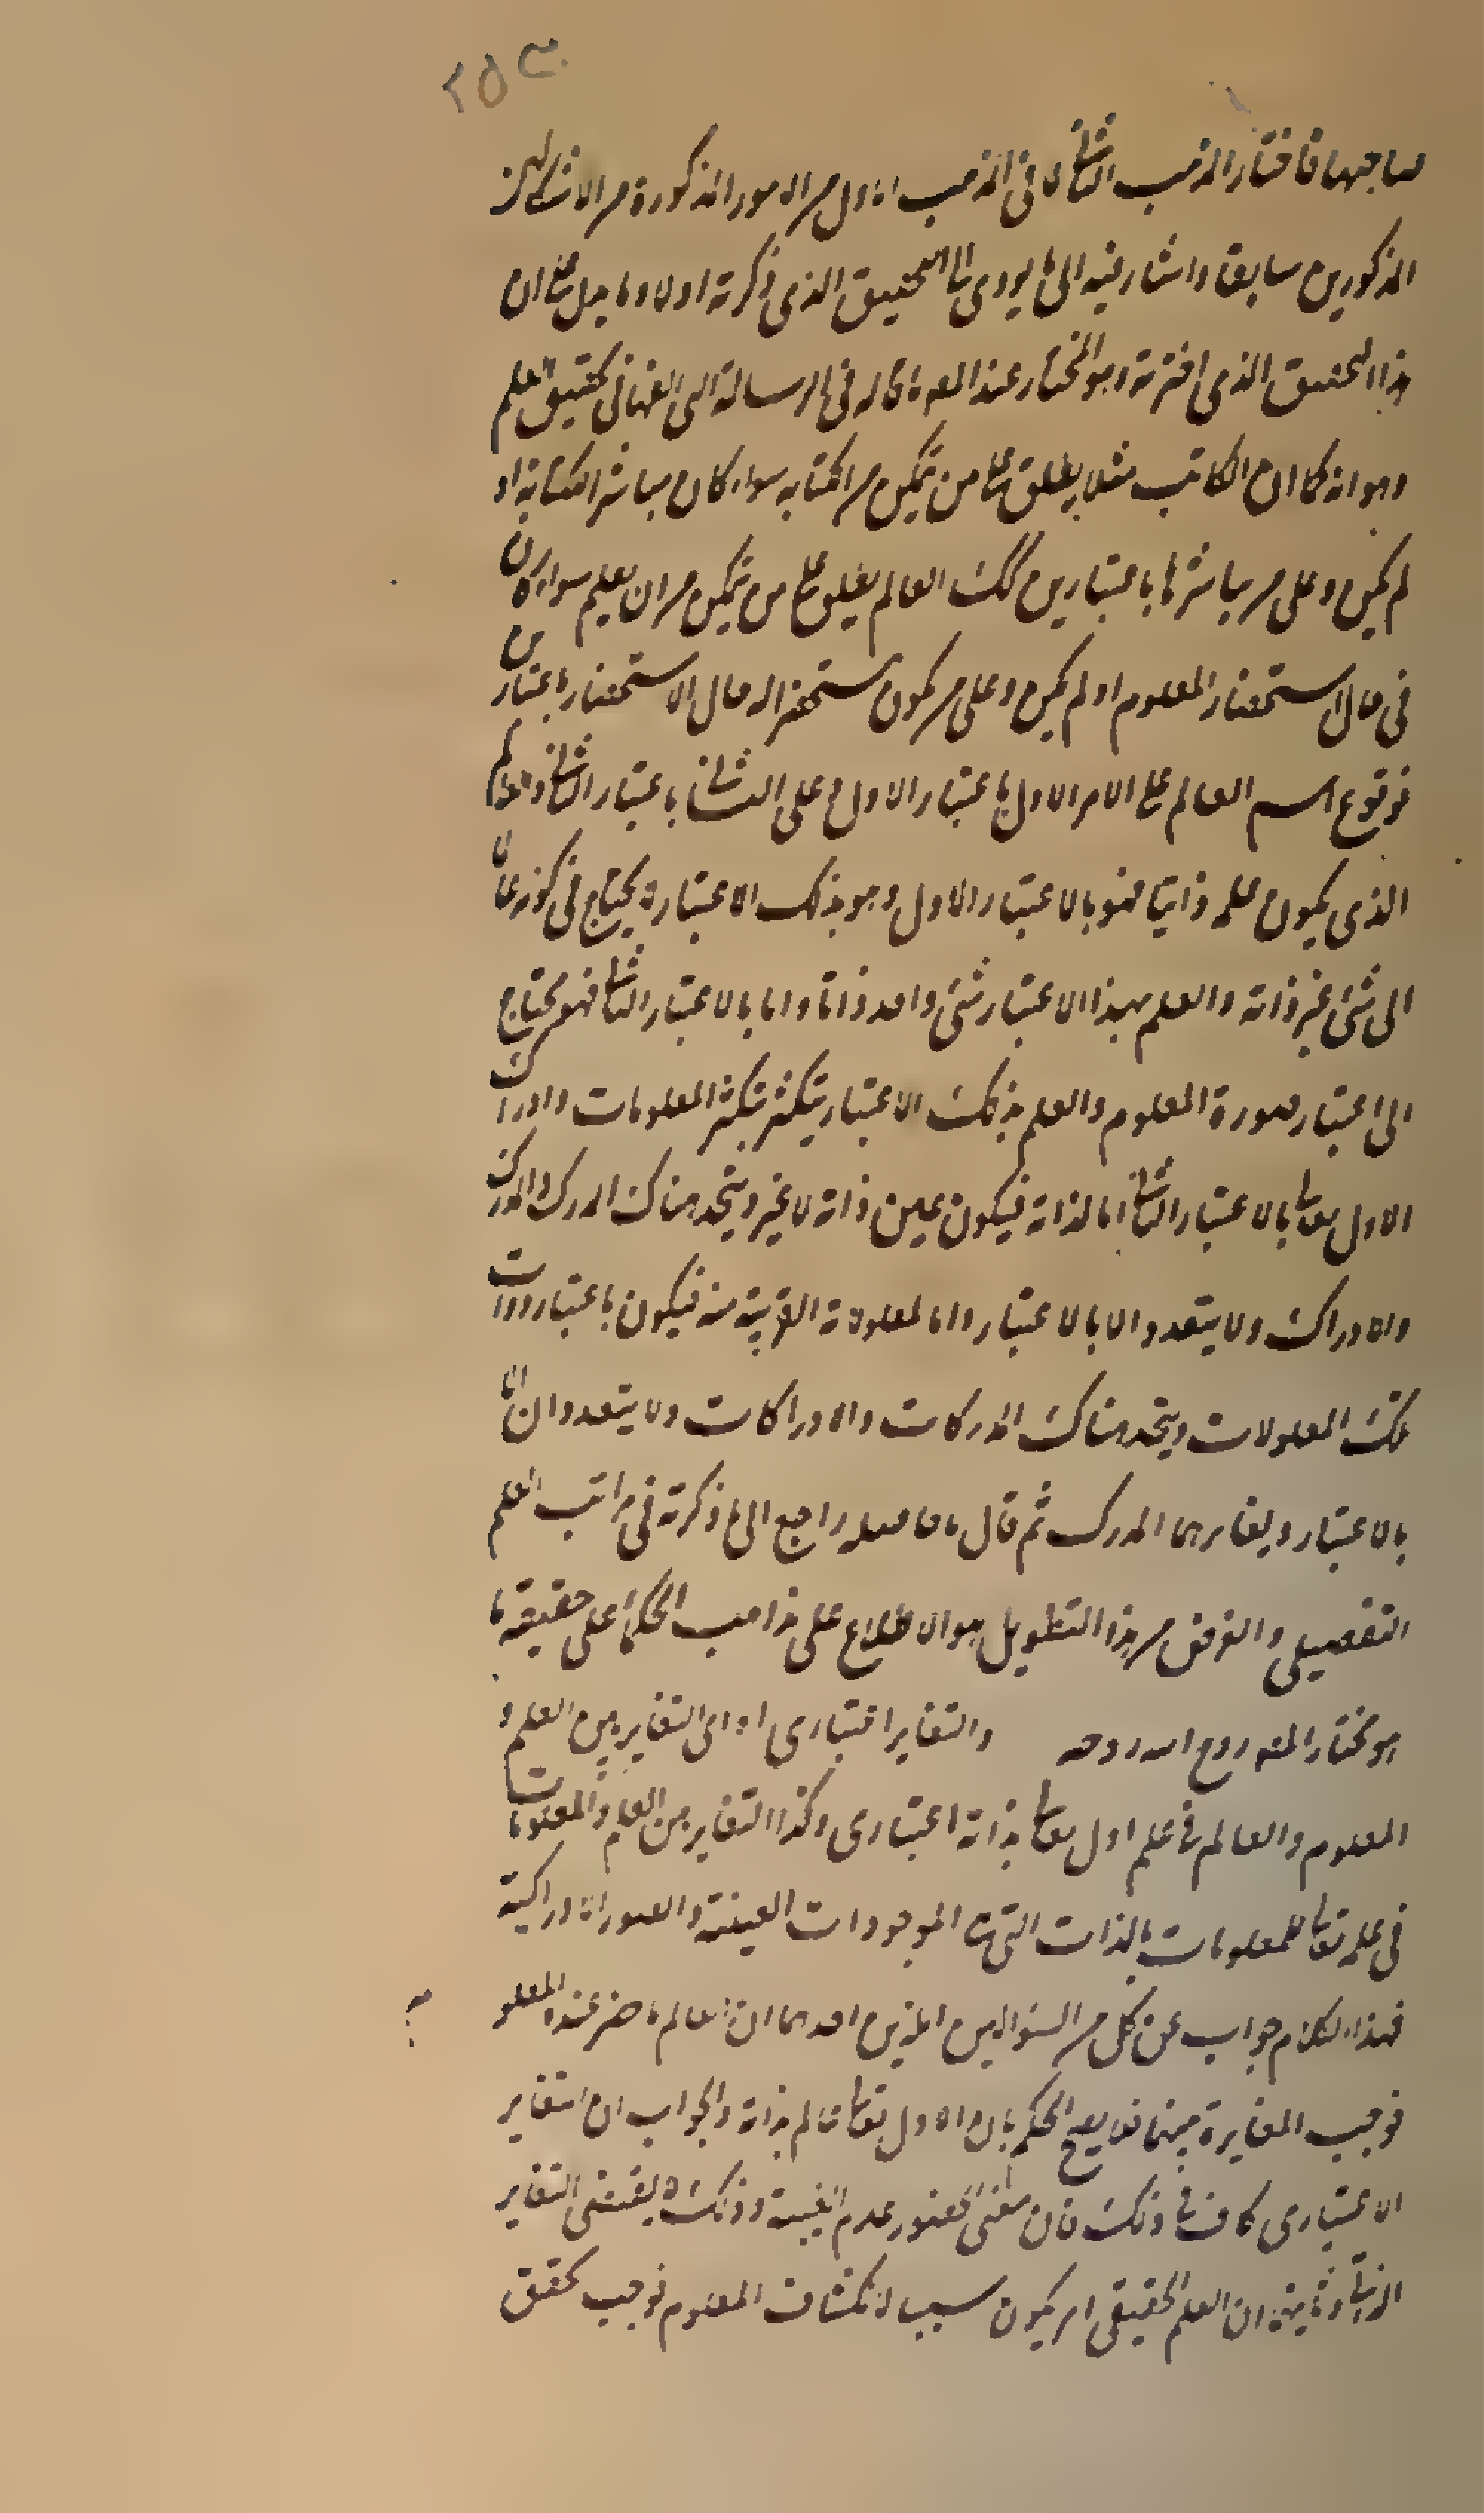 ٢٥٣
صاحبها فاختار المذهب الثانى لا فى المذهب الاول من الامور المذكورة من الاشكالين
المذكورين سابقا واشار فيه الى ما يودى الى التحقيق الذى ذكرته اولا وما يدل على ان
هذا التحقيق الذى اخترته وهو المختار عند المص ما قاله فى الرسالة التى الفها فى تحقيق العلم
وهو انه كما ان الكاتب مثلا يطلق على من يتمكن من الكتابه سواء كان مباشر الكتابة او
لم يكن وعلى من يباشرها باعتبارين كذلك العالم يطلق على من يتمكن من ان يعلم سواء كان
فى حال استحضار المعلوم او لم يكن وعلى من يكون مستحضرا له حال الاستحضار باعتبارين
فوقوع اسم العالم على الامر الاول باعتبار الاول وعلى الثانى باعتبار الثانى والعالم
الذى يكون علمه ذاتيا فهو بالاعتبار الاول وهو بذلك الاعتبار لا يحتاج فى كونه عالما
الى شئ غير ذاته والعلم بهذا الاعتبار شئ واحد ذاتا واما بالاعتبار الثانى فهو يحتاج
الى اعتبار صورة المعلوم والعلم بذلك الاعتبار يتكثر بتكثر المعلومات وادراك
الاول تعالى بالاعتبار الثانى اما لذاته فيكون بعين ذاته لا غير ويتحد هناك المدرك والمدرك
والادراك ولا يتعدد الا بالاعتبار واما لمعلولاته القريبة منه فيكون باعتبار ذوات
تلك المعلولات ويتحد هناك المدركات والادراكات ولا يتعددان الا
بالاعتبار ويغايرهما المدرك ثم قال ما حاصله راجع الى ما ذكرته فى مراتب العلم
التفصيلى والغرض من هذا التطويل هو الاطلاع على مذاهب الحكماء على حقيقة ما
هو مختار المص روح الله روحه والتغاير اعتبارى اه اى التغاير بين العلم و
المعلوم والعالم فى علم اول تعالى بذاته اعتبارى وكذا التغاير بين العلم والمعلومات
فى علمه تعالى للمعلومات بالذات التى هى الموجودات العينية والصور الادراكية
فهذا الكلام جواب عن كل من السؤالين الذين احدهما ان العالم ما حضر عنده المعلوم
فوجب المغايرة بينهما فلا يصح الحكم بان الاول تعالى عالم بذاته والجواب ان التغاير
الاعتبارى كاف فى ذلك فان معنى الحضور عدم الغيبة وذلك لا يقتضى التغاير
الذاتى وثانيهما ان العلم الحقيقى امر يكون سببا لانكشاف المعلوم فوجب تحقق